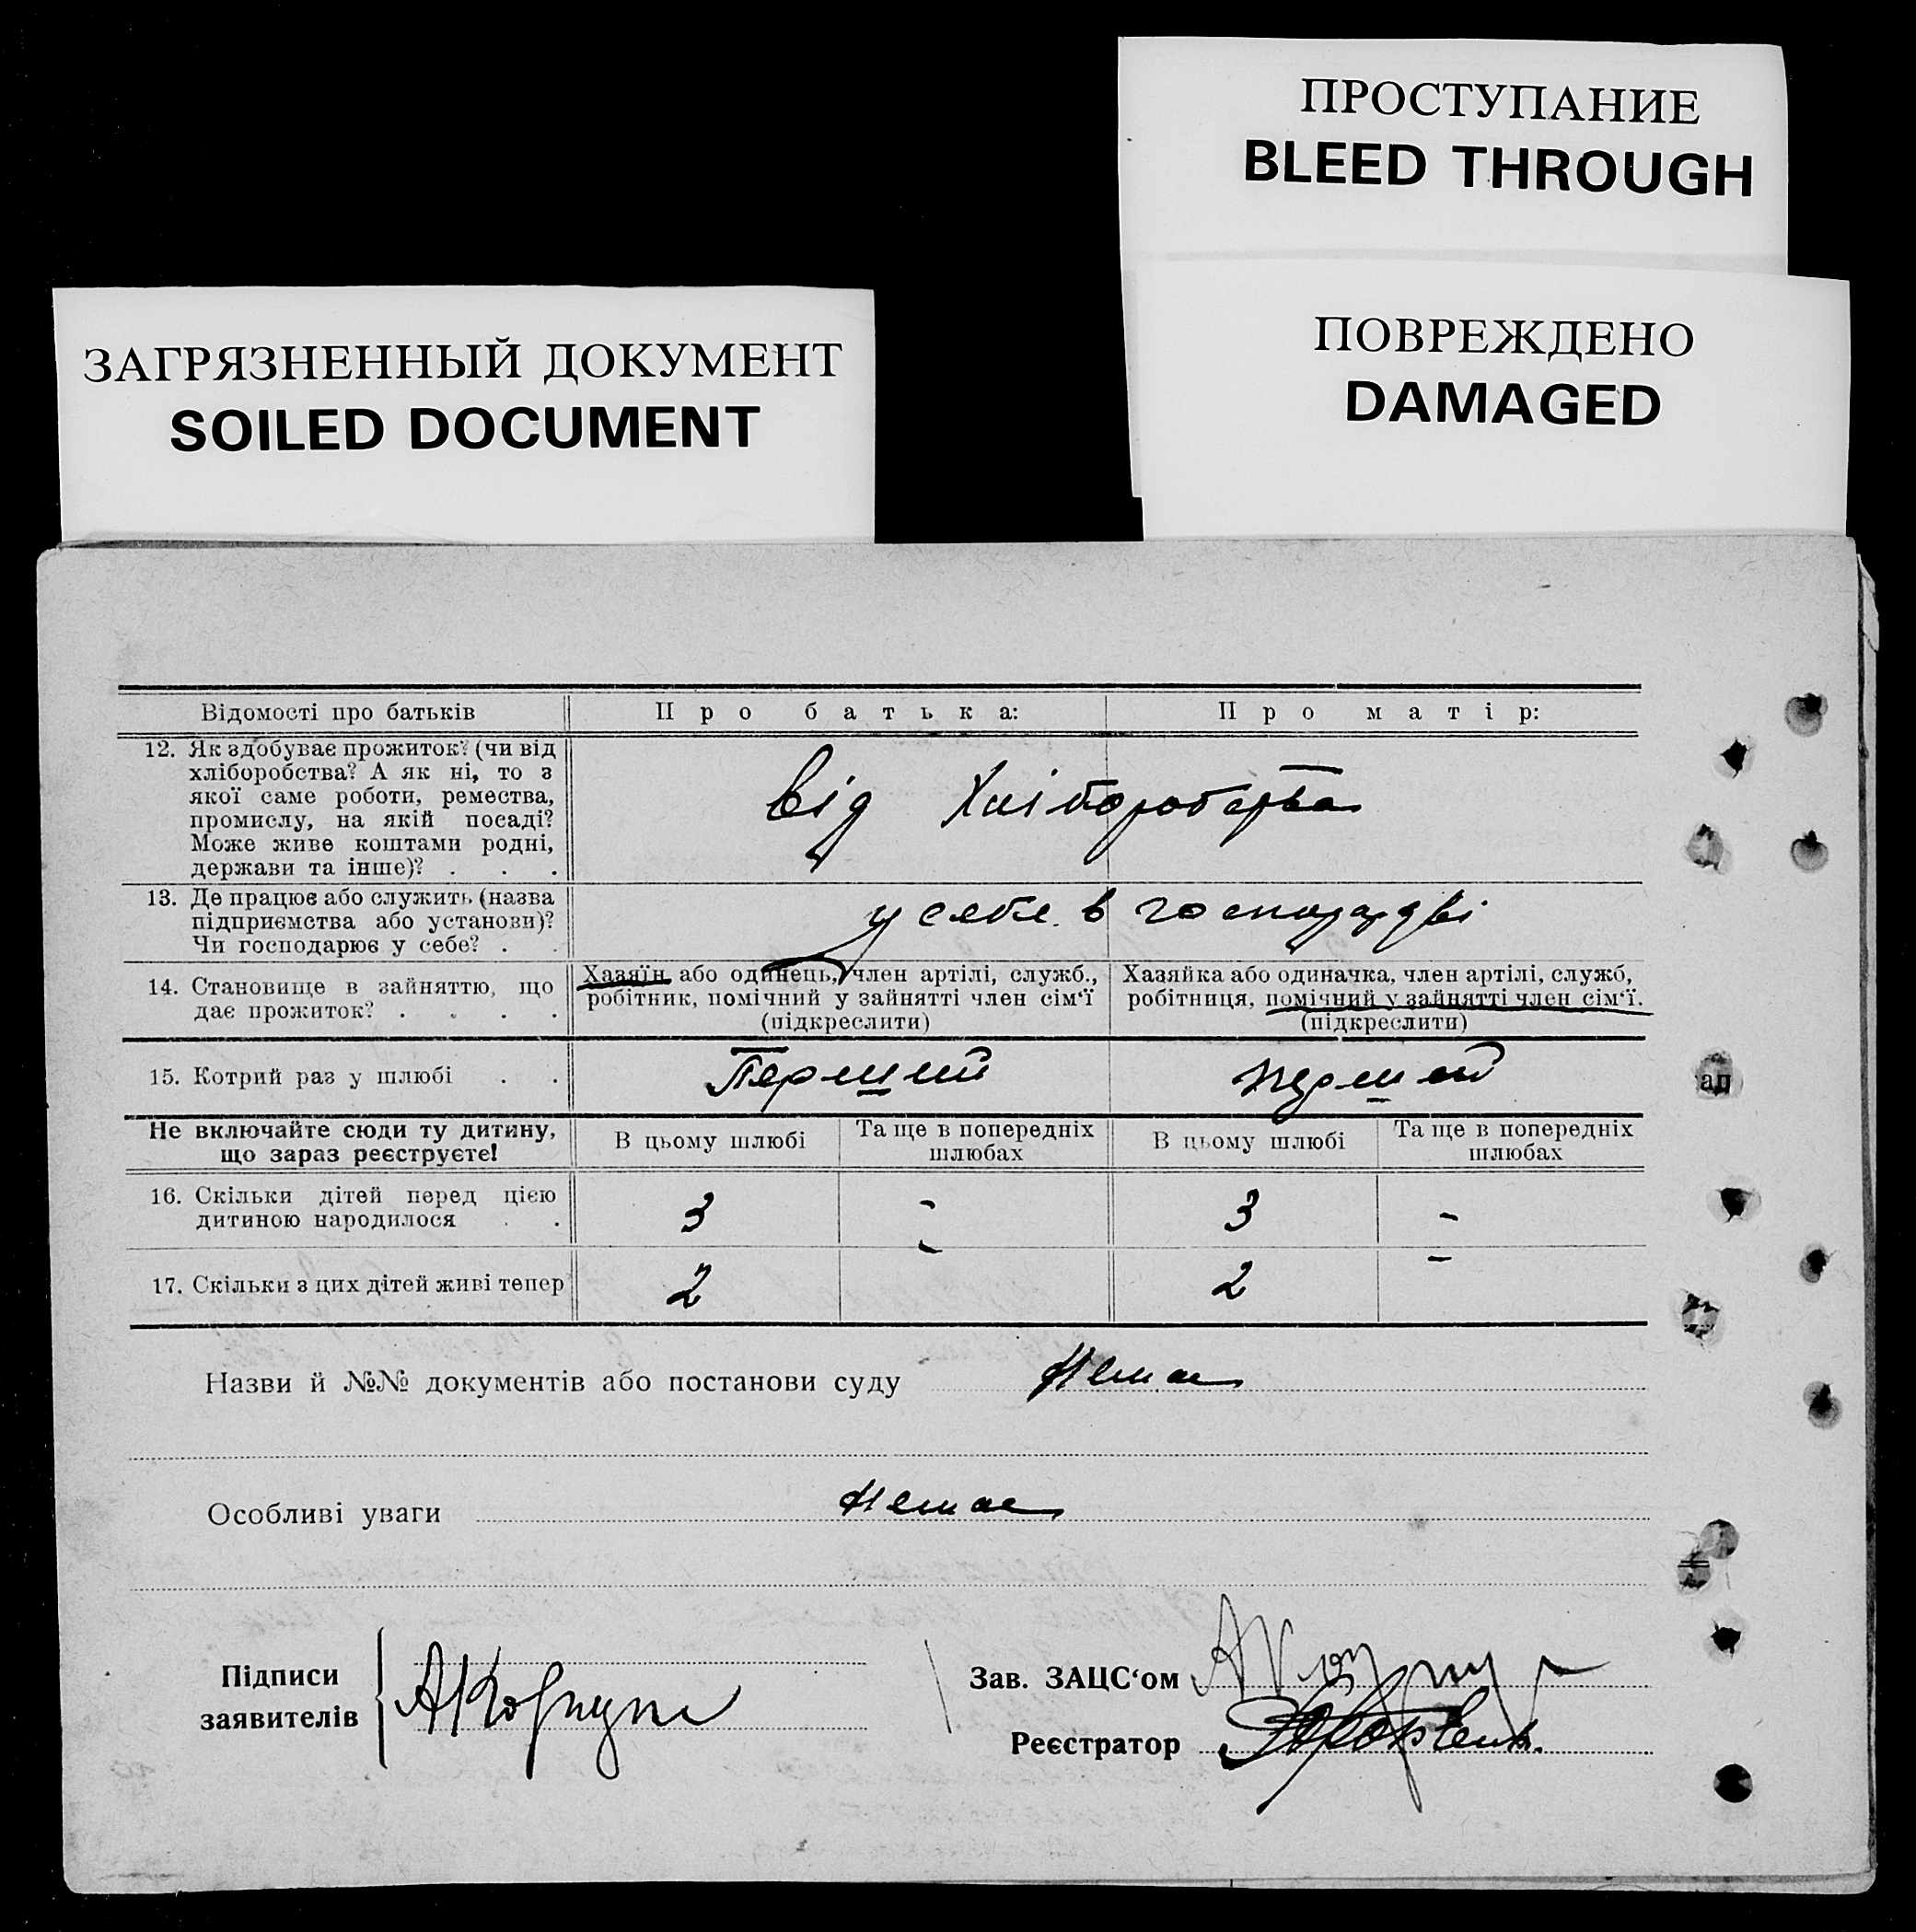 ПРОСТУПАНИЕ
BLEED THROUGH
ПОВРЕЖДЕНО
DAMAGED
ЗАГРЯЗНЕННЫЙ ДОКУМЕНТ
SOILED DOCUMENT
Відомості про батьків
Про батька:
Про матір:
12. Як здобуває прожиток? (чи від
хліборобства? А як ні, то з
якої саме роботи, ремества,
промислу, на якій посаді?
Може живе коштами родні,
держави та інше)? . . .
від хліборобства
13. Де працює або служить (назва
підприємства або установи)?
Чи господарює у себе? . .
у себе в господарстві
14. Становище в зайняттю, що
дає прожиток? . . . .
Хазяїн або одинець, член артілі, служб.,
робітник, помічний у зайнятті член сім'ї
(підкреслити)
Хазяйка або одиначка, член артілі, служб,
робітниця, помічний у зайнятті член сім'ї.
(підкреслити)
15. Котрий раз у шлюбі . .
Перший
перший
Не включайте сюди ту дитину,
що зараз реєструєте!
В цьому шлюбі
Та ще в попередніх
шлюбах
В цьому шлюбі
Та ще в попередніх
шлюбах
16. Скільки дітей перед цією
дитиною народилося . .
3 - 3 -
17. Скільки з цих дітей живі тепер
2 - 2 -
Назви й №№ документів або постанови суду Немає
Особливі уваги Немає
Підписи
заявителів
Зав. ЗАЦС'ом
Реєстратор